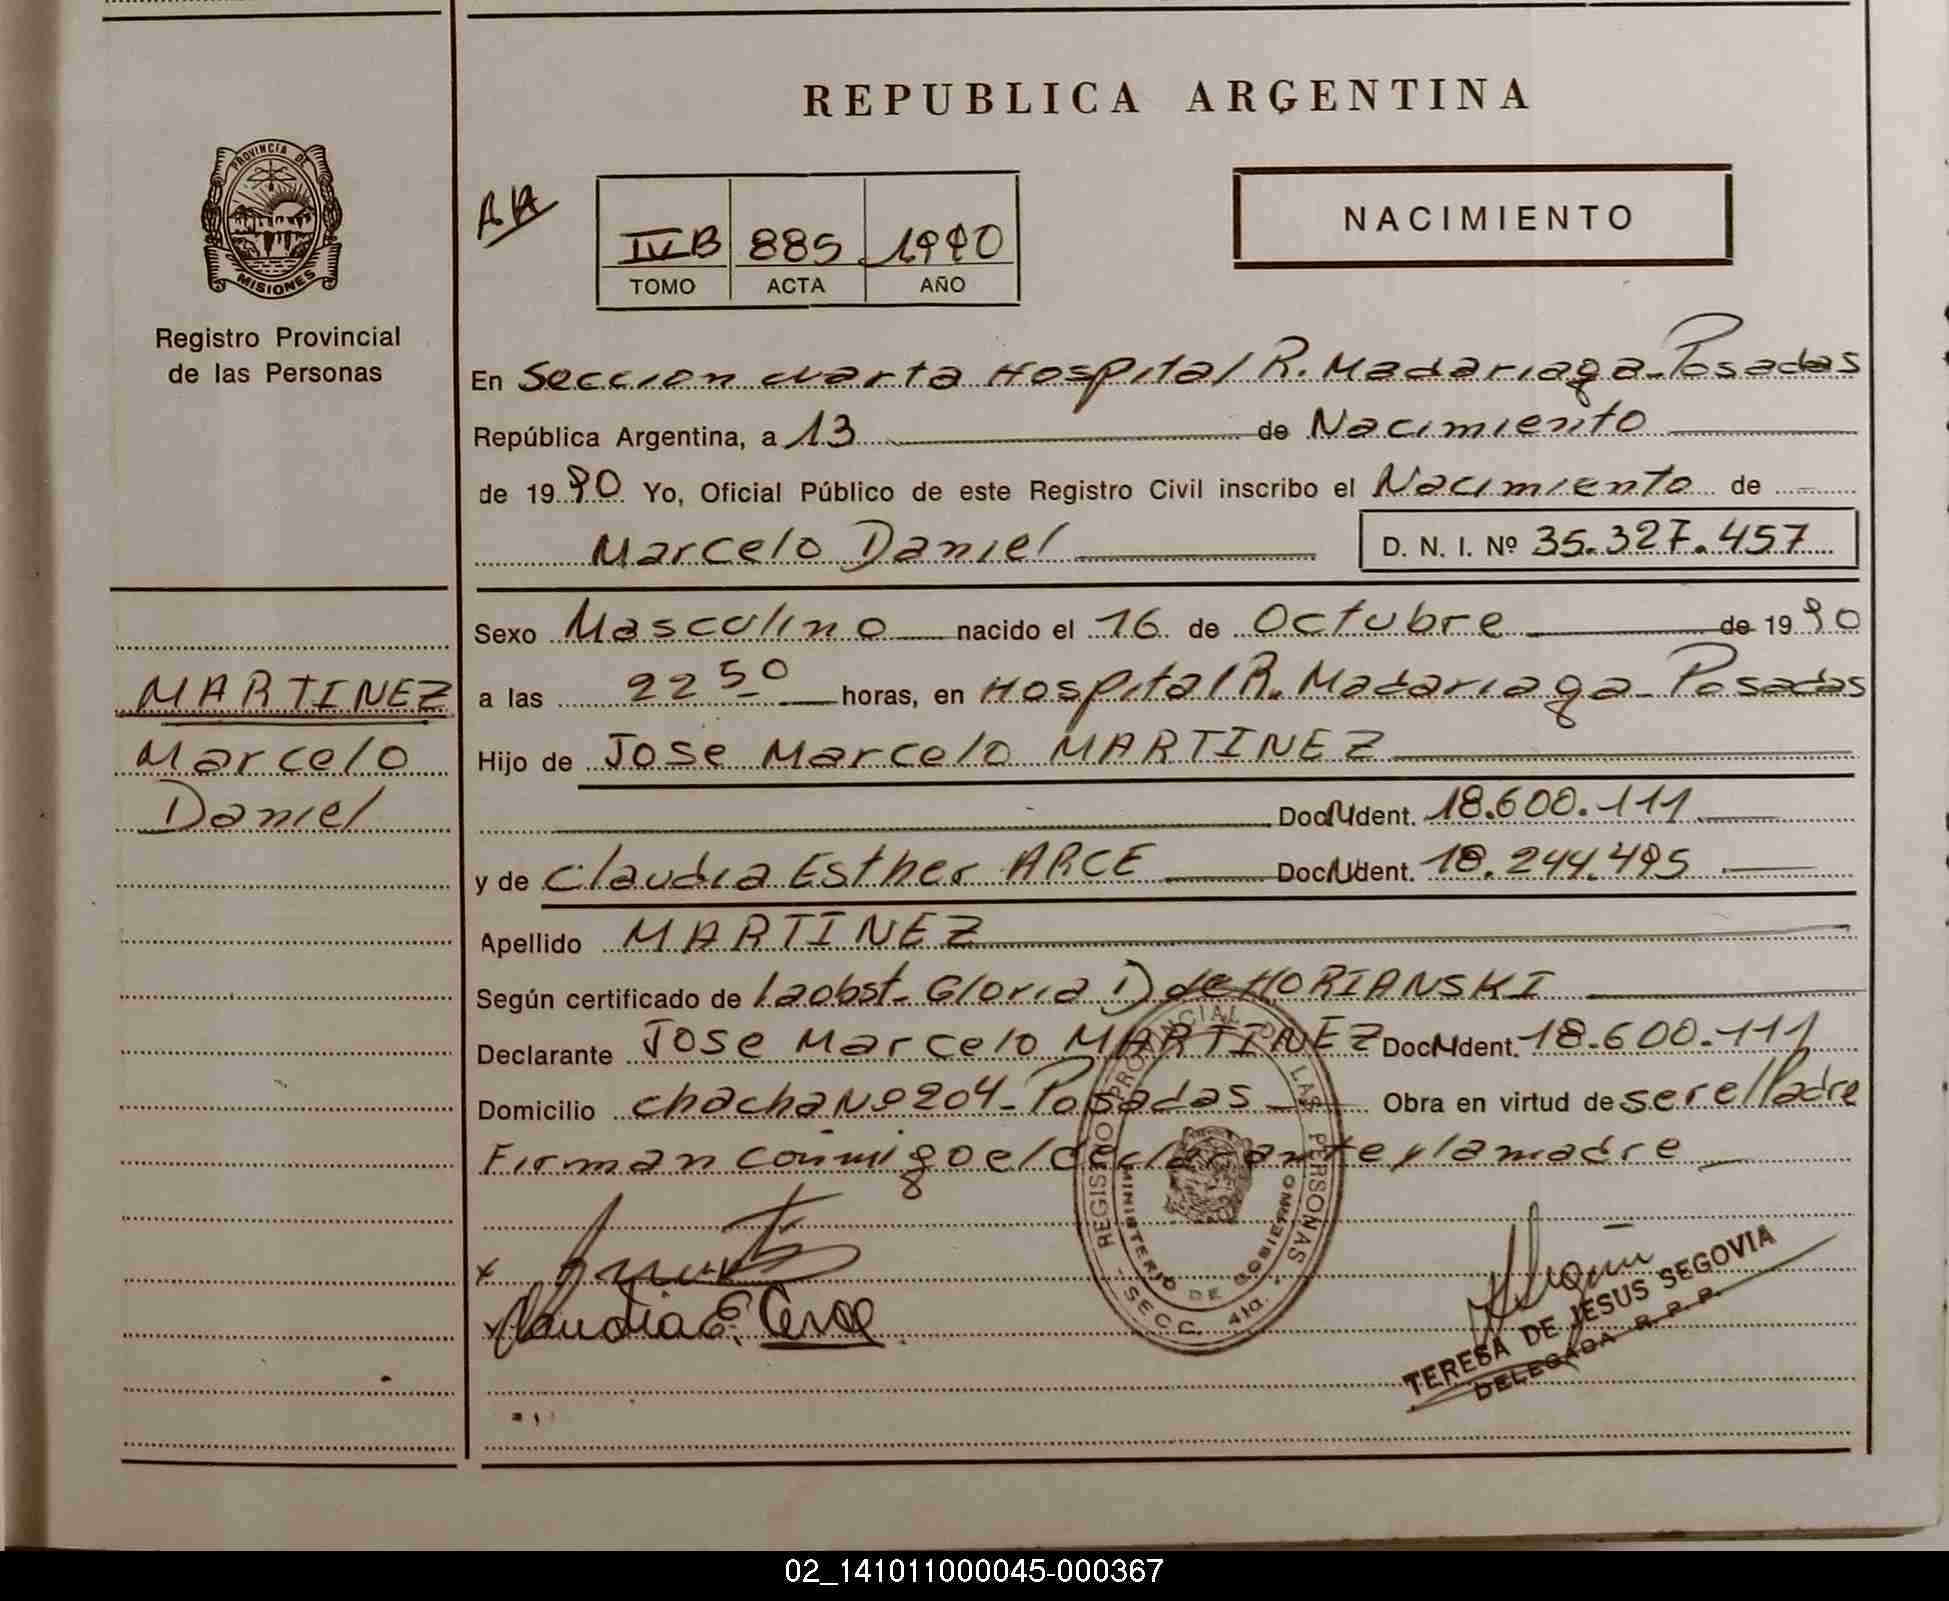 REPUBLICA ARGENTINA
PROVINCIA DE
MISIONES
Registro Provincial
de las Personas
IV B 885 1990
TOMO ACTA AÑO
NACIMIENTO
En Seccion cuarta Hospital R. Madariaga - Posadas
República Argentina, a 13 de Nacimiento
de 1990 Yo, Oficial Público de este Registro Civil inscribo el Nacimiento de
Marcelo Daniel
D. N. I. Nº 35.327.457
Sexo Masculino nacido el 16 de Octubre de 1990
MARTINEZ
Marcelo
Daniel
a las 22 50 horas, en Hospital R. Madariaga - Posadas
Hijo de Jose Marcelo MARTINEZ
Doc. Ident. 18.600.111
y de Claudia Esther ARCE Doc. Ident. 18.244.495
Apellido MARTINEZ
Según certificado de la obst. Gloria D de HORIANSKI
Declarante Jose Marcelo MARTINEZ Doc. Ident. 18.600.111
Domicilio chacha Nº 204 - Posadas Obra en virtud de ser el Padre
Firman conmigo el declarante y la madre
REGISTRO PROVINCIAL DE LAS PERSONAS
MINISTERIO DE GOBIERNO
SECC. 4ta.
Claudia E. Arce
TERESA DE JESUS SEGOVIA
DELEGADA R. P. P.
02_141011000045-000367